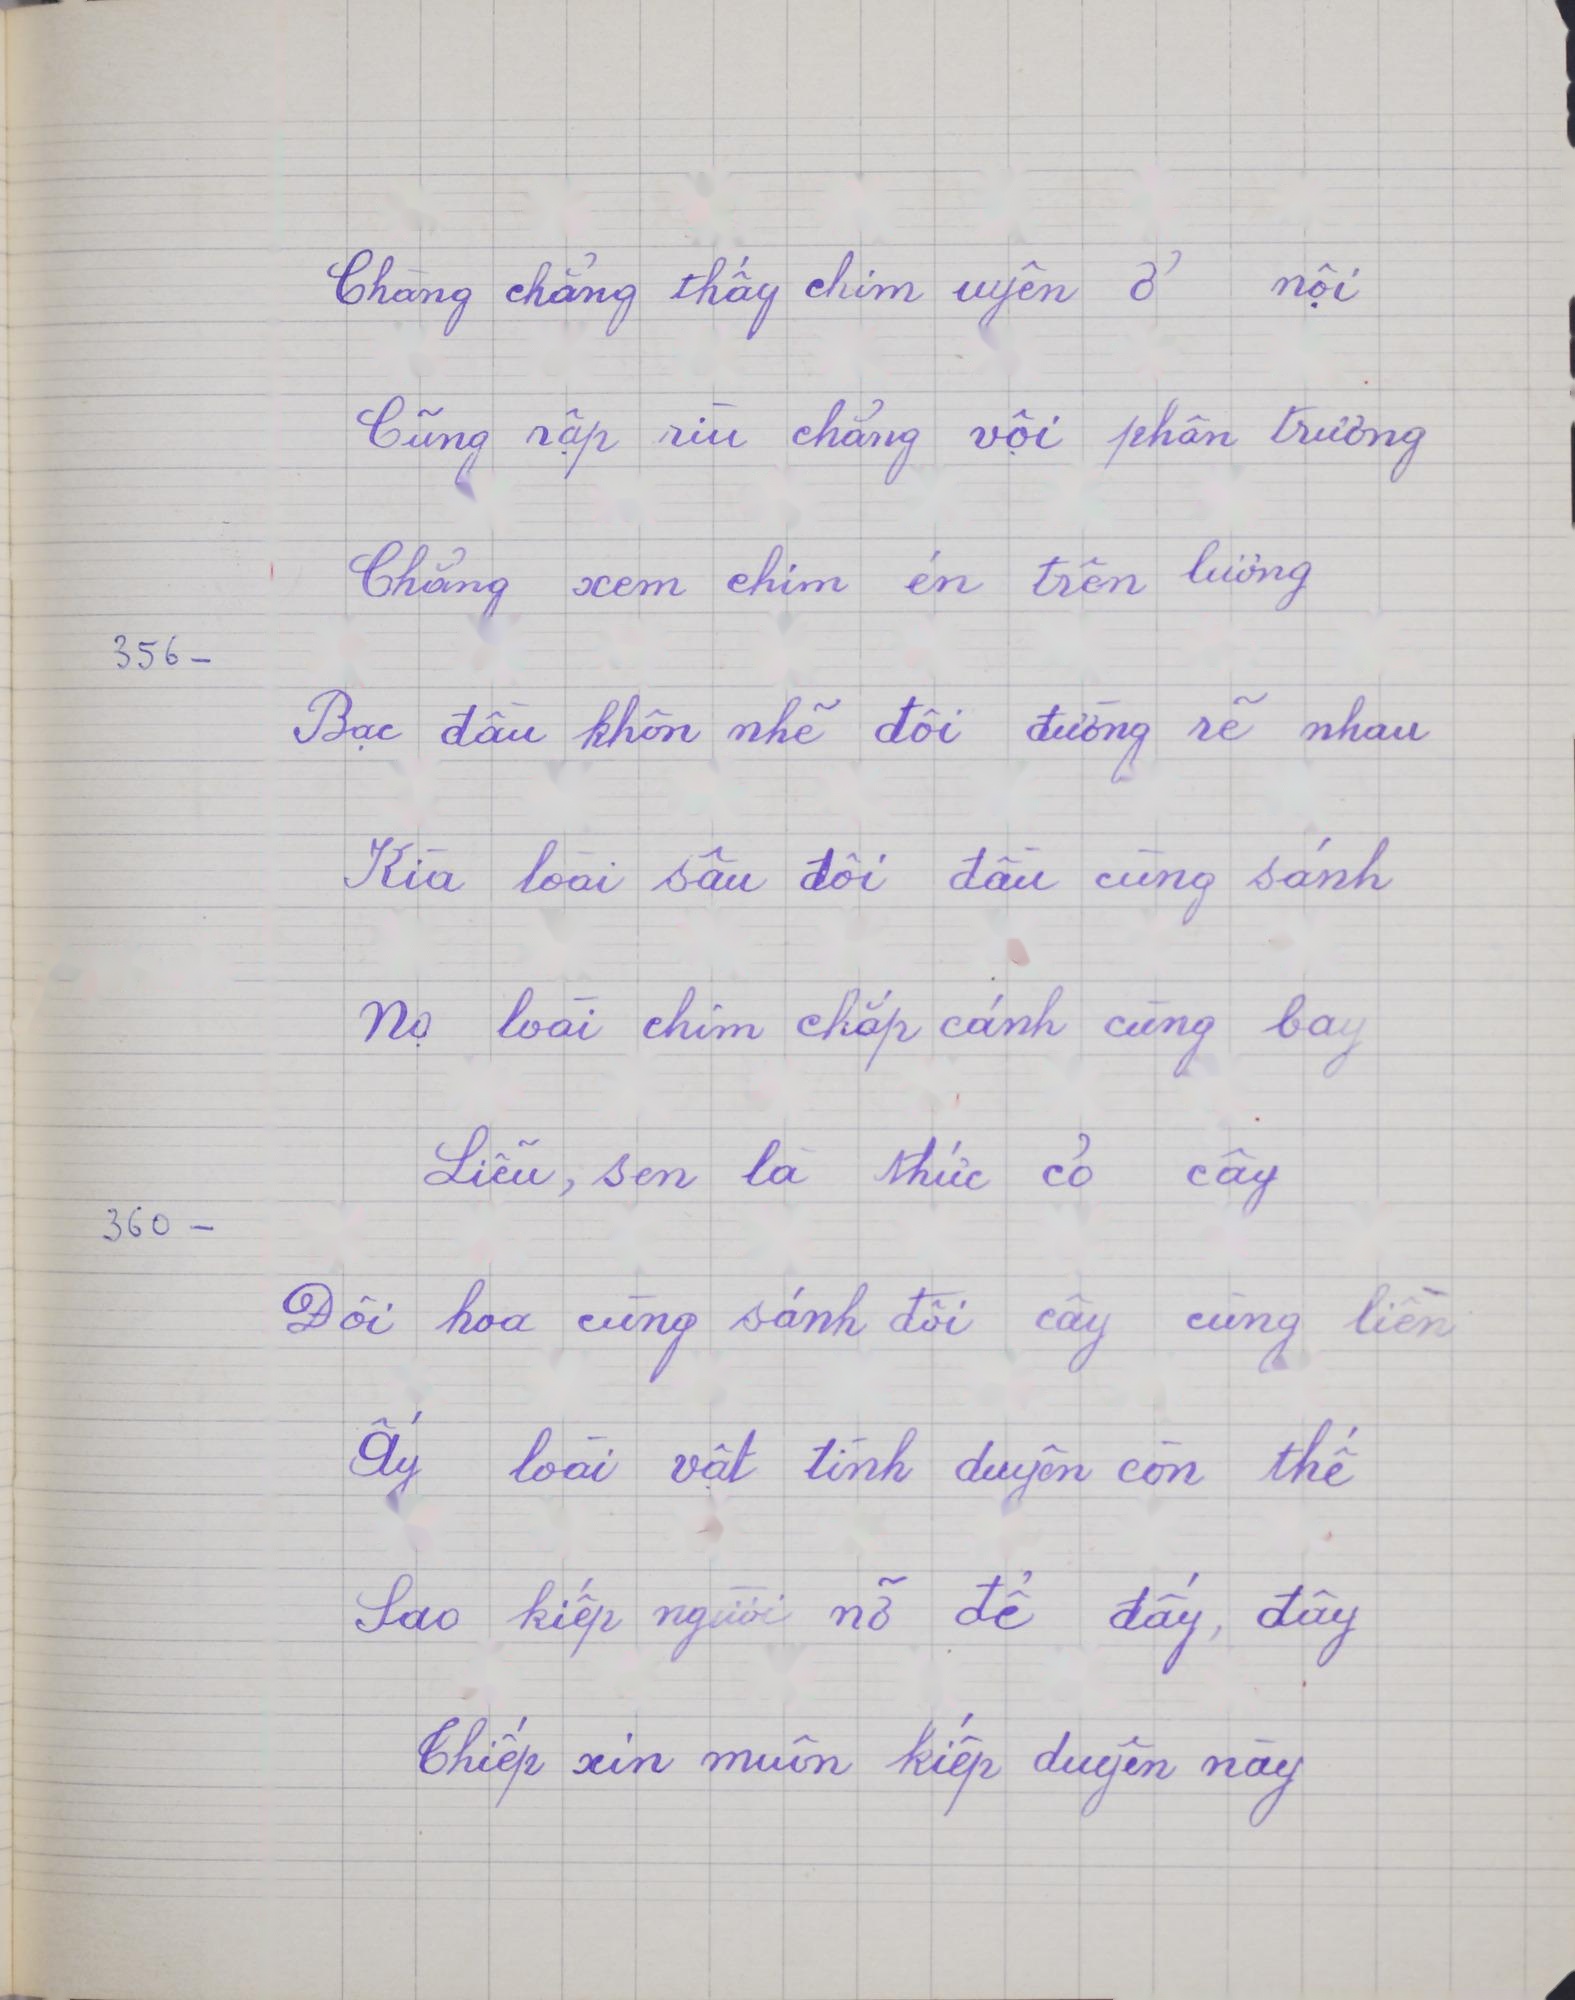 Chàng chẳng thấy chim uyên ở nội
Cũng rập rìu chẳng vội phân trương
Chẳng xem chim én trên lương
356-
Bạc đầu khôn nhẽ đôi đường rẽ nhau
Kìa loài sâu đôi đầu cùng sánh
Nọ loài chim chắp cánh cùng bay
Liễu, sen là thức cỏ cây
360-
Đôi hoa cùng sánh đôi cây cùng liền
Ấy loài vật tình duyên còn thế
Sao kiếp người nỡ để đấy, đây
Thiếp xin muôn kiếp duyên này